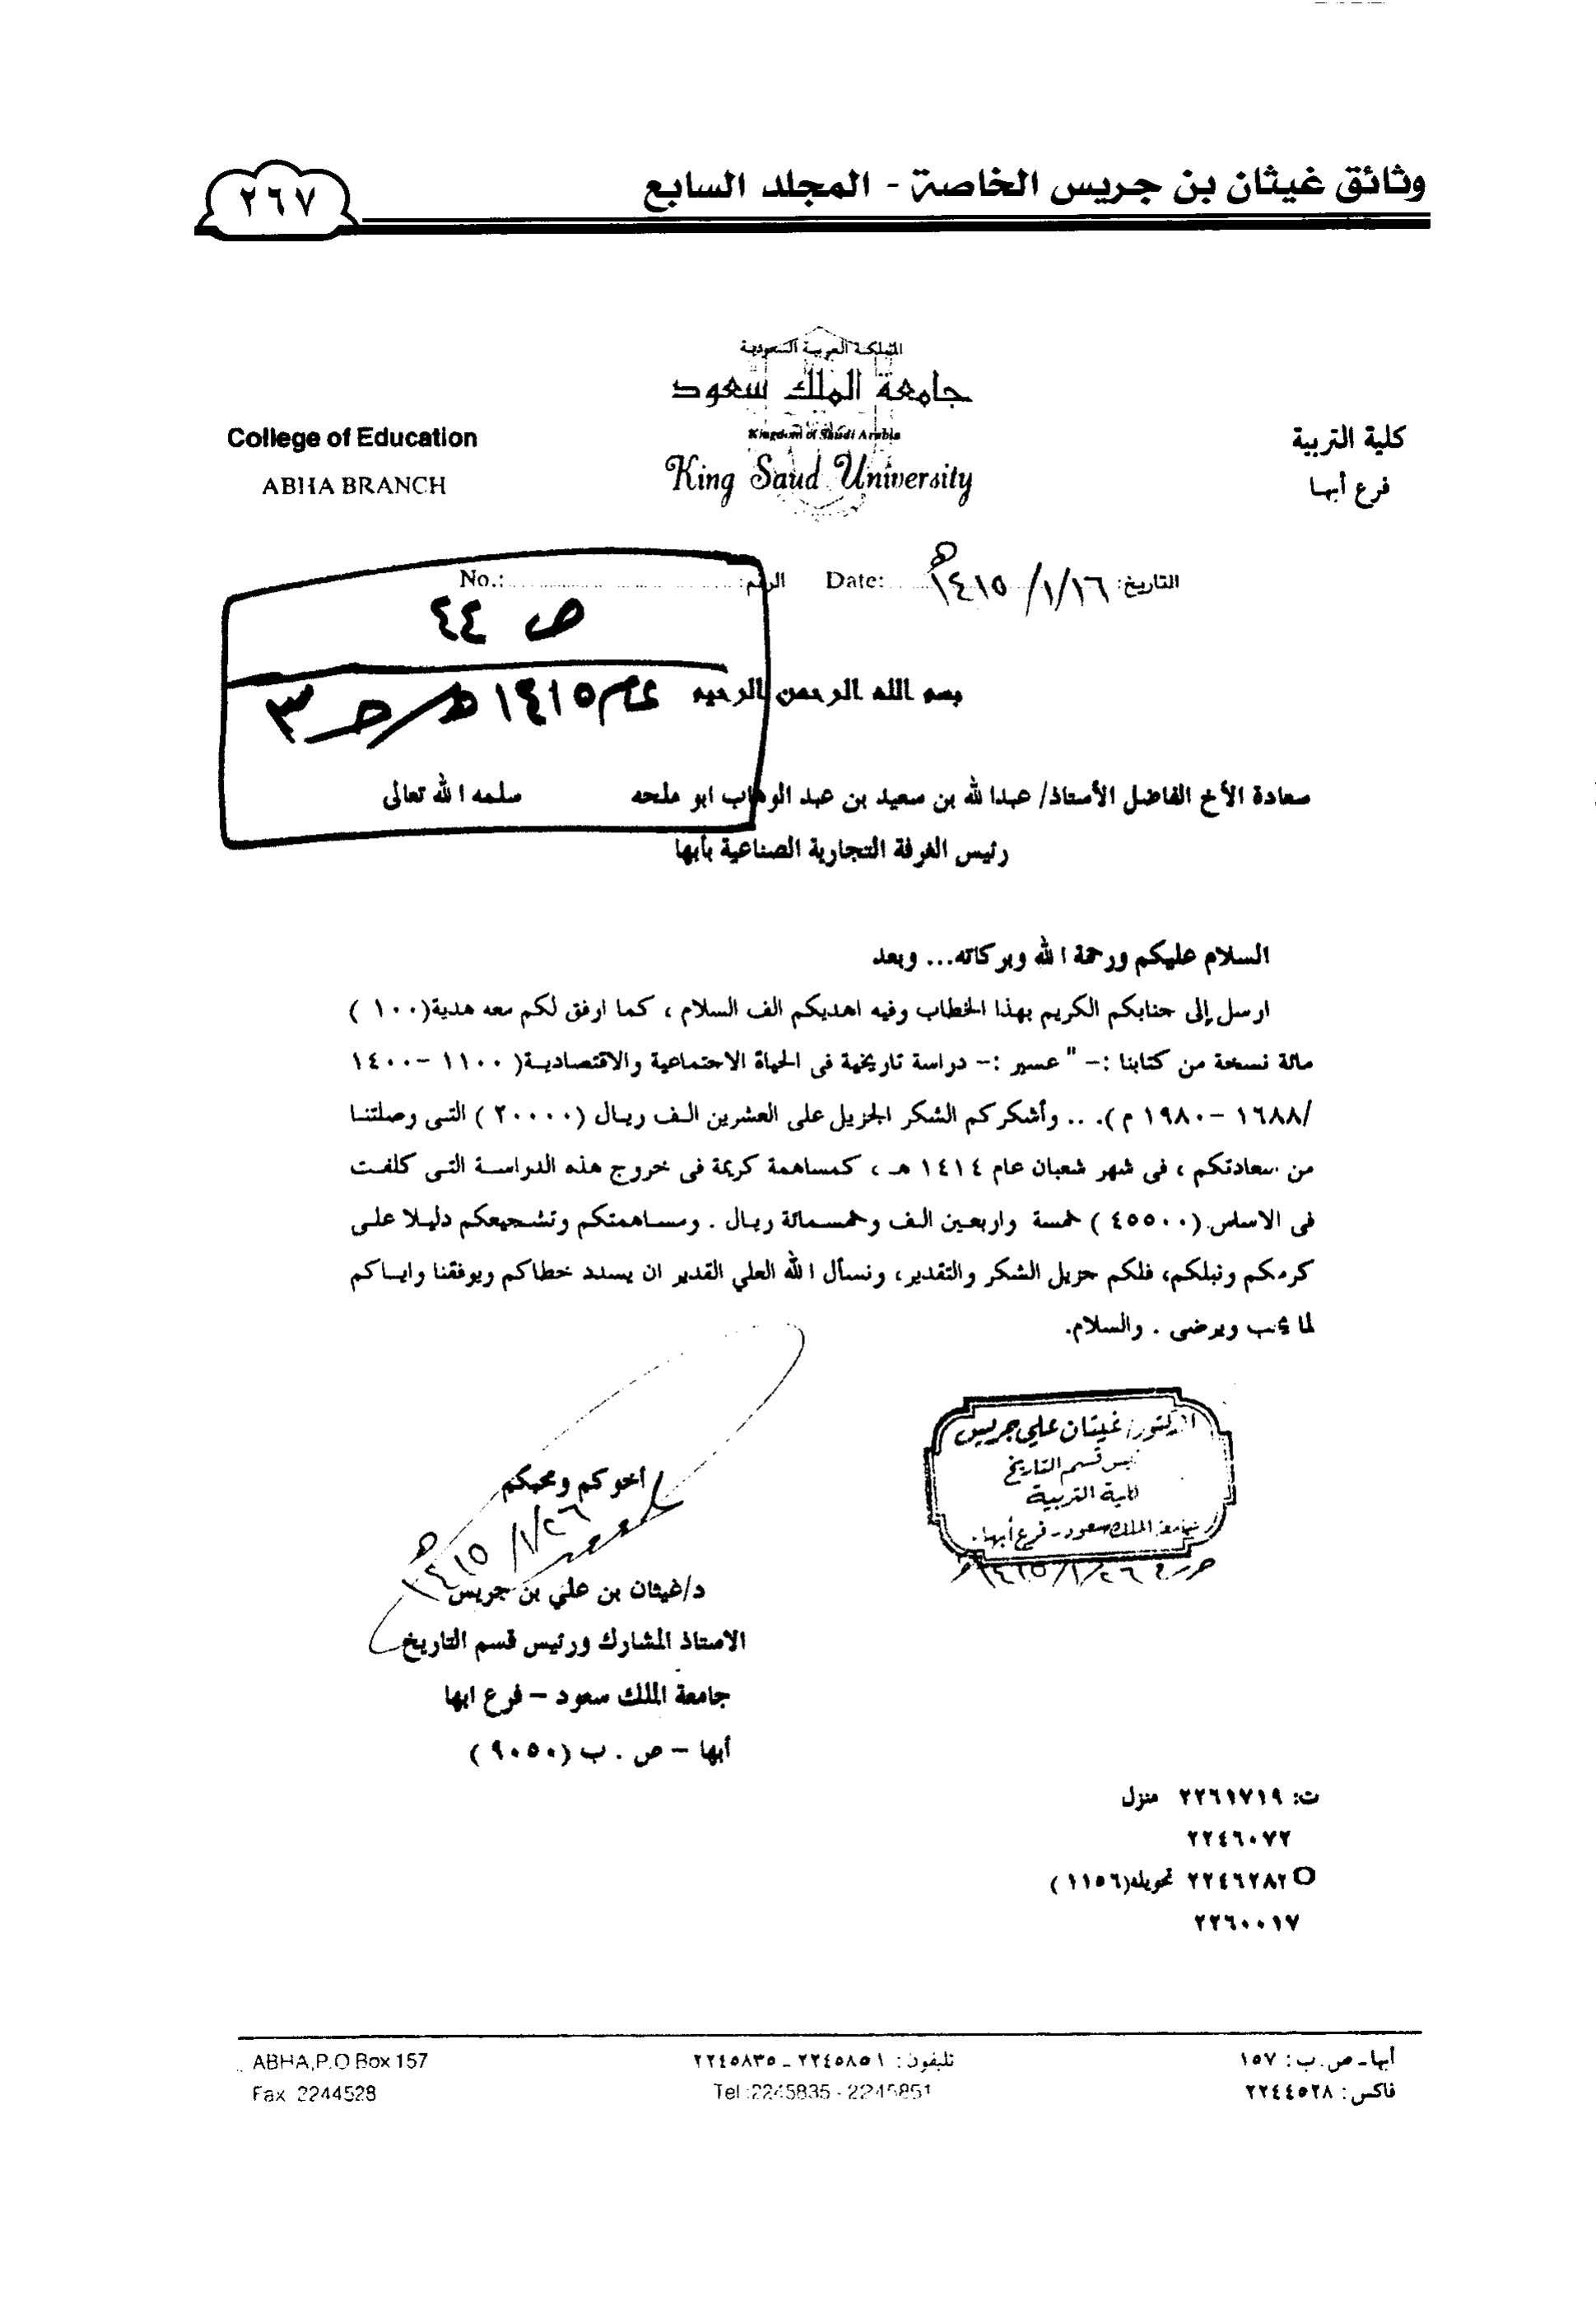 وثائق غيثان بن جريس الخاصة - المجلد السابع
٢٦٧
المملكة العربية السعودية
جامعة الملك سعود
Kingdom of Saudi Arabia
King Saud University
كلية التربية
فرع أبها
College of Education
ABHA BRANCH
التاريخ: ١٤١٥/١/١٦هـ Date:
الرقم: No.:
ص ٤٤
عام ١٤١٥هـ / حـ ٣
بسم الله الرحمن الرحيم
سعادة الأخ الفاضل الأستاذ/ عبدالله بن سعيد بن عبد الوهاب ابو ملحه سلمه الله تعالى
رئيس الغرفة التجارية الصناعية بأبها
السلام عليكم ورحمة الله وبركاته... وبعد
ارسل إلى جنابكم الكريم بهذا الخطاب وفيه اهديكم الف السلام ، كما ارفق لكم معه هدية(١٠٠ )
مائة نسخة من كتابنا :- " عسير :- دراسة تاريخية فى الحياة الاجتماعية والاقتصادية( ١١٠٠ -١٤٠٠
/١٦٨٨ -١٩٨٠ م). .. وأشكركم الشكر الجزيل على العشرين الف ريال (٢٠٠٠٠ ) التى وصلتنا
من سعادتكم ، فى شهر شعبان عام ١٤١٤ هـ ، كمساهمة كريمة فى خروج هذه الدراسة التى كلفت
فى الاساس (٤٥٥٠٠ ) خمسة واربعين الف وخمسمائة ريال . ومساهمتكم وتشجيعكم دليلا على
كرمكم ونبلكم، فلكم جزيل الشكر والتقدير، ونسأل الله العلي القدير ان يسدد خطاكم ويوفقنا واياكم
لما يحب ويرضى . والسلام.
الدكتور/ غيثان علي جريس
رئيس قسم التاريخ
كلية التربية
جامعة الملك سعود - فرع أبها.
١٤١٥/١/٢٦هـ
أخوكم ومحبكم
١٤١٥/١/٢٦هـ
د/غيثان بن علي بن جريس
الاستاذ المشارك ورئيس قسم التاريخ
جامعة الملك سعود – فرع ابها
أبها – ص . ب (٩٠٥٠ )
ت: ٢٢٦١٧١٩ منزل
٢٢٤٦٠٧٢
٢٢٤٦٢٨٢ تحويله(١١٥٦ )
٢٢٦٠٠١٧
أبها ـ ص . ب : ١٥٧
فاكس : ٢٢٤٤٥٢٨
تليفون : ٢٢٤٥٨٥١ ـ ٢٢٤٥٨٣٥
Tel :2245835 - 2245851
ABHA,P.O Box 157
Fax 2244528